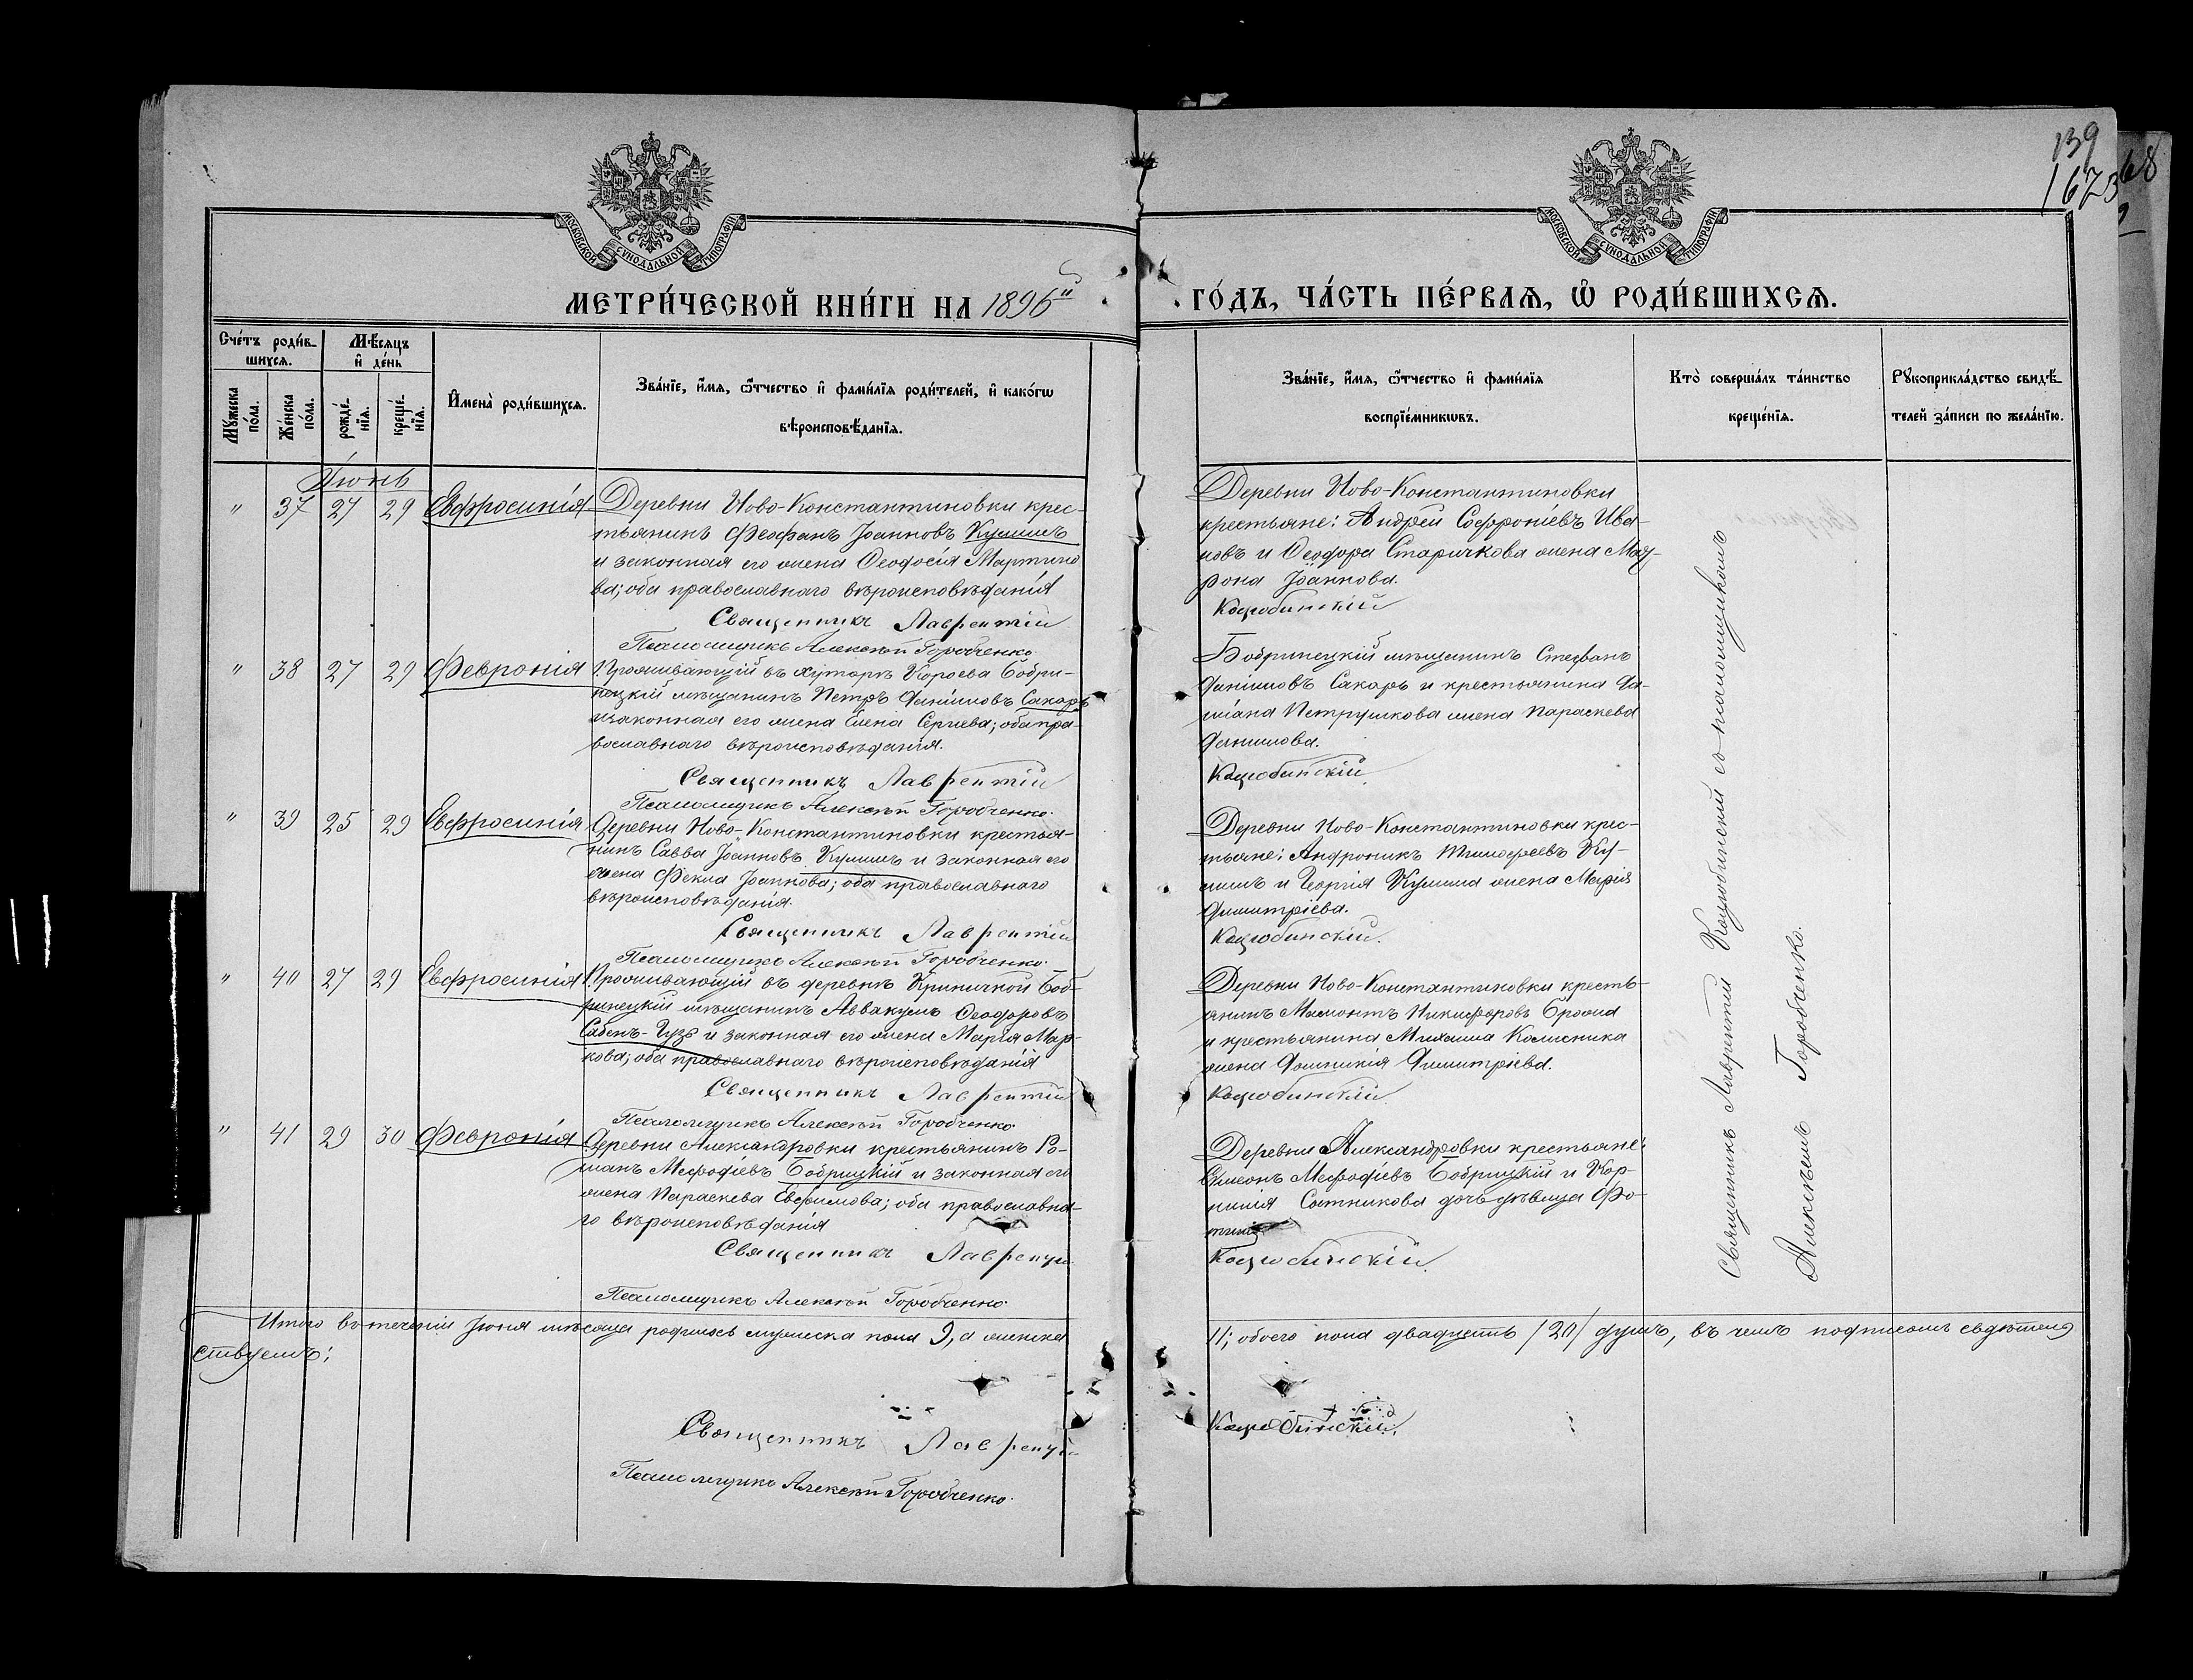 139
167 3 68
МОСКОВСКОЙ СѴНОДАЛЬНОЙ ТИПОГРАФІИ
МОСКОВСКОЙ СѴНОДАЛЬНОЙ ТИПОГРАФІИ
МЕТРИ́ЧЕСКОЙ КНИ́ГИ НА 1896й
ГО́ДЪ, ЧА́СТЬ ПЕ́РВАѦ, Ѡ҆ РОДИ́ВШИХСѦ.
Сче́тъ роди́в-
шихсѧ.
Мѣ́сѧцъ
и҆ де́нь
Мꙋ́жеска
по́ла.
Же́нска
по́ла.
рожде́-
нїѧ.
креще́-
нїѧ.
И҆мена̀ роди́вшихсѧ.
Зва́нїе, и҆́мѧ, ѻ҆́тчество и҆ фами́лїѧ роди́телей, и҆ како́гѡ
вѣроисповѣ́данїѧ.
Зва́нїе, и҆́мѧ, ѻ҆́тчество и҆ фами́лїѧ
воспрїе́мникѡвъ.
Кто̀ соверша́лъ та́инство
креще́нїѧ.
Рꙋкоприкла́дство свидѣ́-
телей за́писи по жела́нїю.
Іюнь
" 37 27 29 Евфросинія
Деревни Ново-Константиновки крес-
тьянинъ Феофанъ Іоанновъ Кулишъ
и законная его жена Ѳеодосія Мартино
ва; оба православнаго вѣроисповѣданія
Священникъ Лаврентій
Псаломщикъ Алексѣй Горобченко.
Деревни Ново-Константиновки
крестьяне: Андрей Софроніевъ Ива-
новъ и Ѳеодора Старичкова жена Мат-
рона Іоаннова.
Коцюбинскій
" 38 27 29 Февронія
Проживающій въ хуторѣ Короева Бобри-
нецкій мѣщанинъ Петръ Даніиловъ Сакаръ
и законная его жена Елена Сергіева; оба пра-
вославнаго вѣроисповѣданія.
Священникъ Лаврентій
Псаломщикъ Алексѣй Горобченко.
Бобринецкій мѣщанинъ Стефанъ
Даніиловъ Сакаръ и крестьянина Да-
міана Петрушкова жена Параскева
Данилова.
Коцюбинскій.
" 39 25 29 Евфросинія
Деревни Ново-Константиновки крестья-
нинъ Савва Іоанновъ Кулишъ и законная его
жена Фекла Іоаннова; оба православнаго
вѣроисповѣданія.
Священникъ Лаврентій
Псаломщикъ Алексѣй Горобченко.
Деревни Ново-Константиновки крес-
тьяне: Андроникъ Тимофеевъ Ку-
лишъ и Георгія Кулиша жена Марія
Димитріева.
Коцюбинскій.
" 40 27 29 Евфросинія
Проживающій въ деревнѣ Криничной Боб-
ринецкій мѣщанинъ Аввакумъ Ѳеодоровъ
Сабенъ-Гузъ и законная его жена Марія Мар-
кова; оба православнаго вѣроисповѣданія
Священникъ Лаврентій
Псаломщикъ Алексѣй Горобченко
Деревни Ново-Константиновки кресть-
янинъ Мамонтъ Никифоровъ
и крестьянина Михаила Колисника
жена Домникія Димитріева.
Коцюбинскій.
" 41 29 30 Февронія
Деревни Александровки крестьянинъ Ро-
манъ Мефодіевъ Бобрицкій и законная его
жена Параскева Евфимова; оба православна-
го вѣроисповѣданія
Священникъ Лаврентій
Псаломщикъ Алексѣй Горобченко.
Деревни Александровки крестьяне:
Симеонъ Мефодіевъ Бобрицкій и Кор-
нилія Сытникова дочь дѣвица Фо-
тинія
Коцюбинскій.
Священникъ Лаврентій Коцюбинскій съ псаломщикомъ
Алексѣемъ Горобченко.
Итого въ теченіи Іюня мѣсяца родилось мужеска пола 9, а женска
11; обоего пола двадцать /20/ душъ, въ чемъ подписомъ свидѣтель-
ствуемъ:
Священникъ Лаврентій
Коцюбинскій.
Псаломщикъ Алексѣй Горобченко.